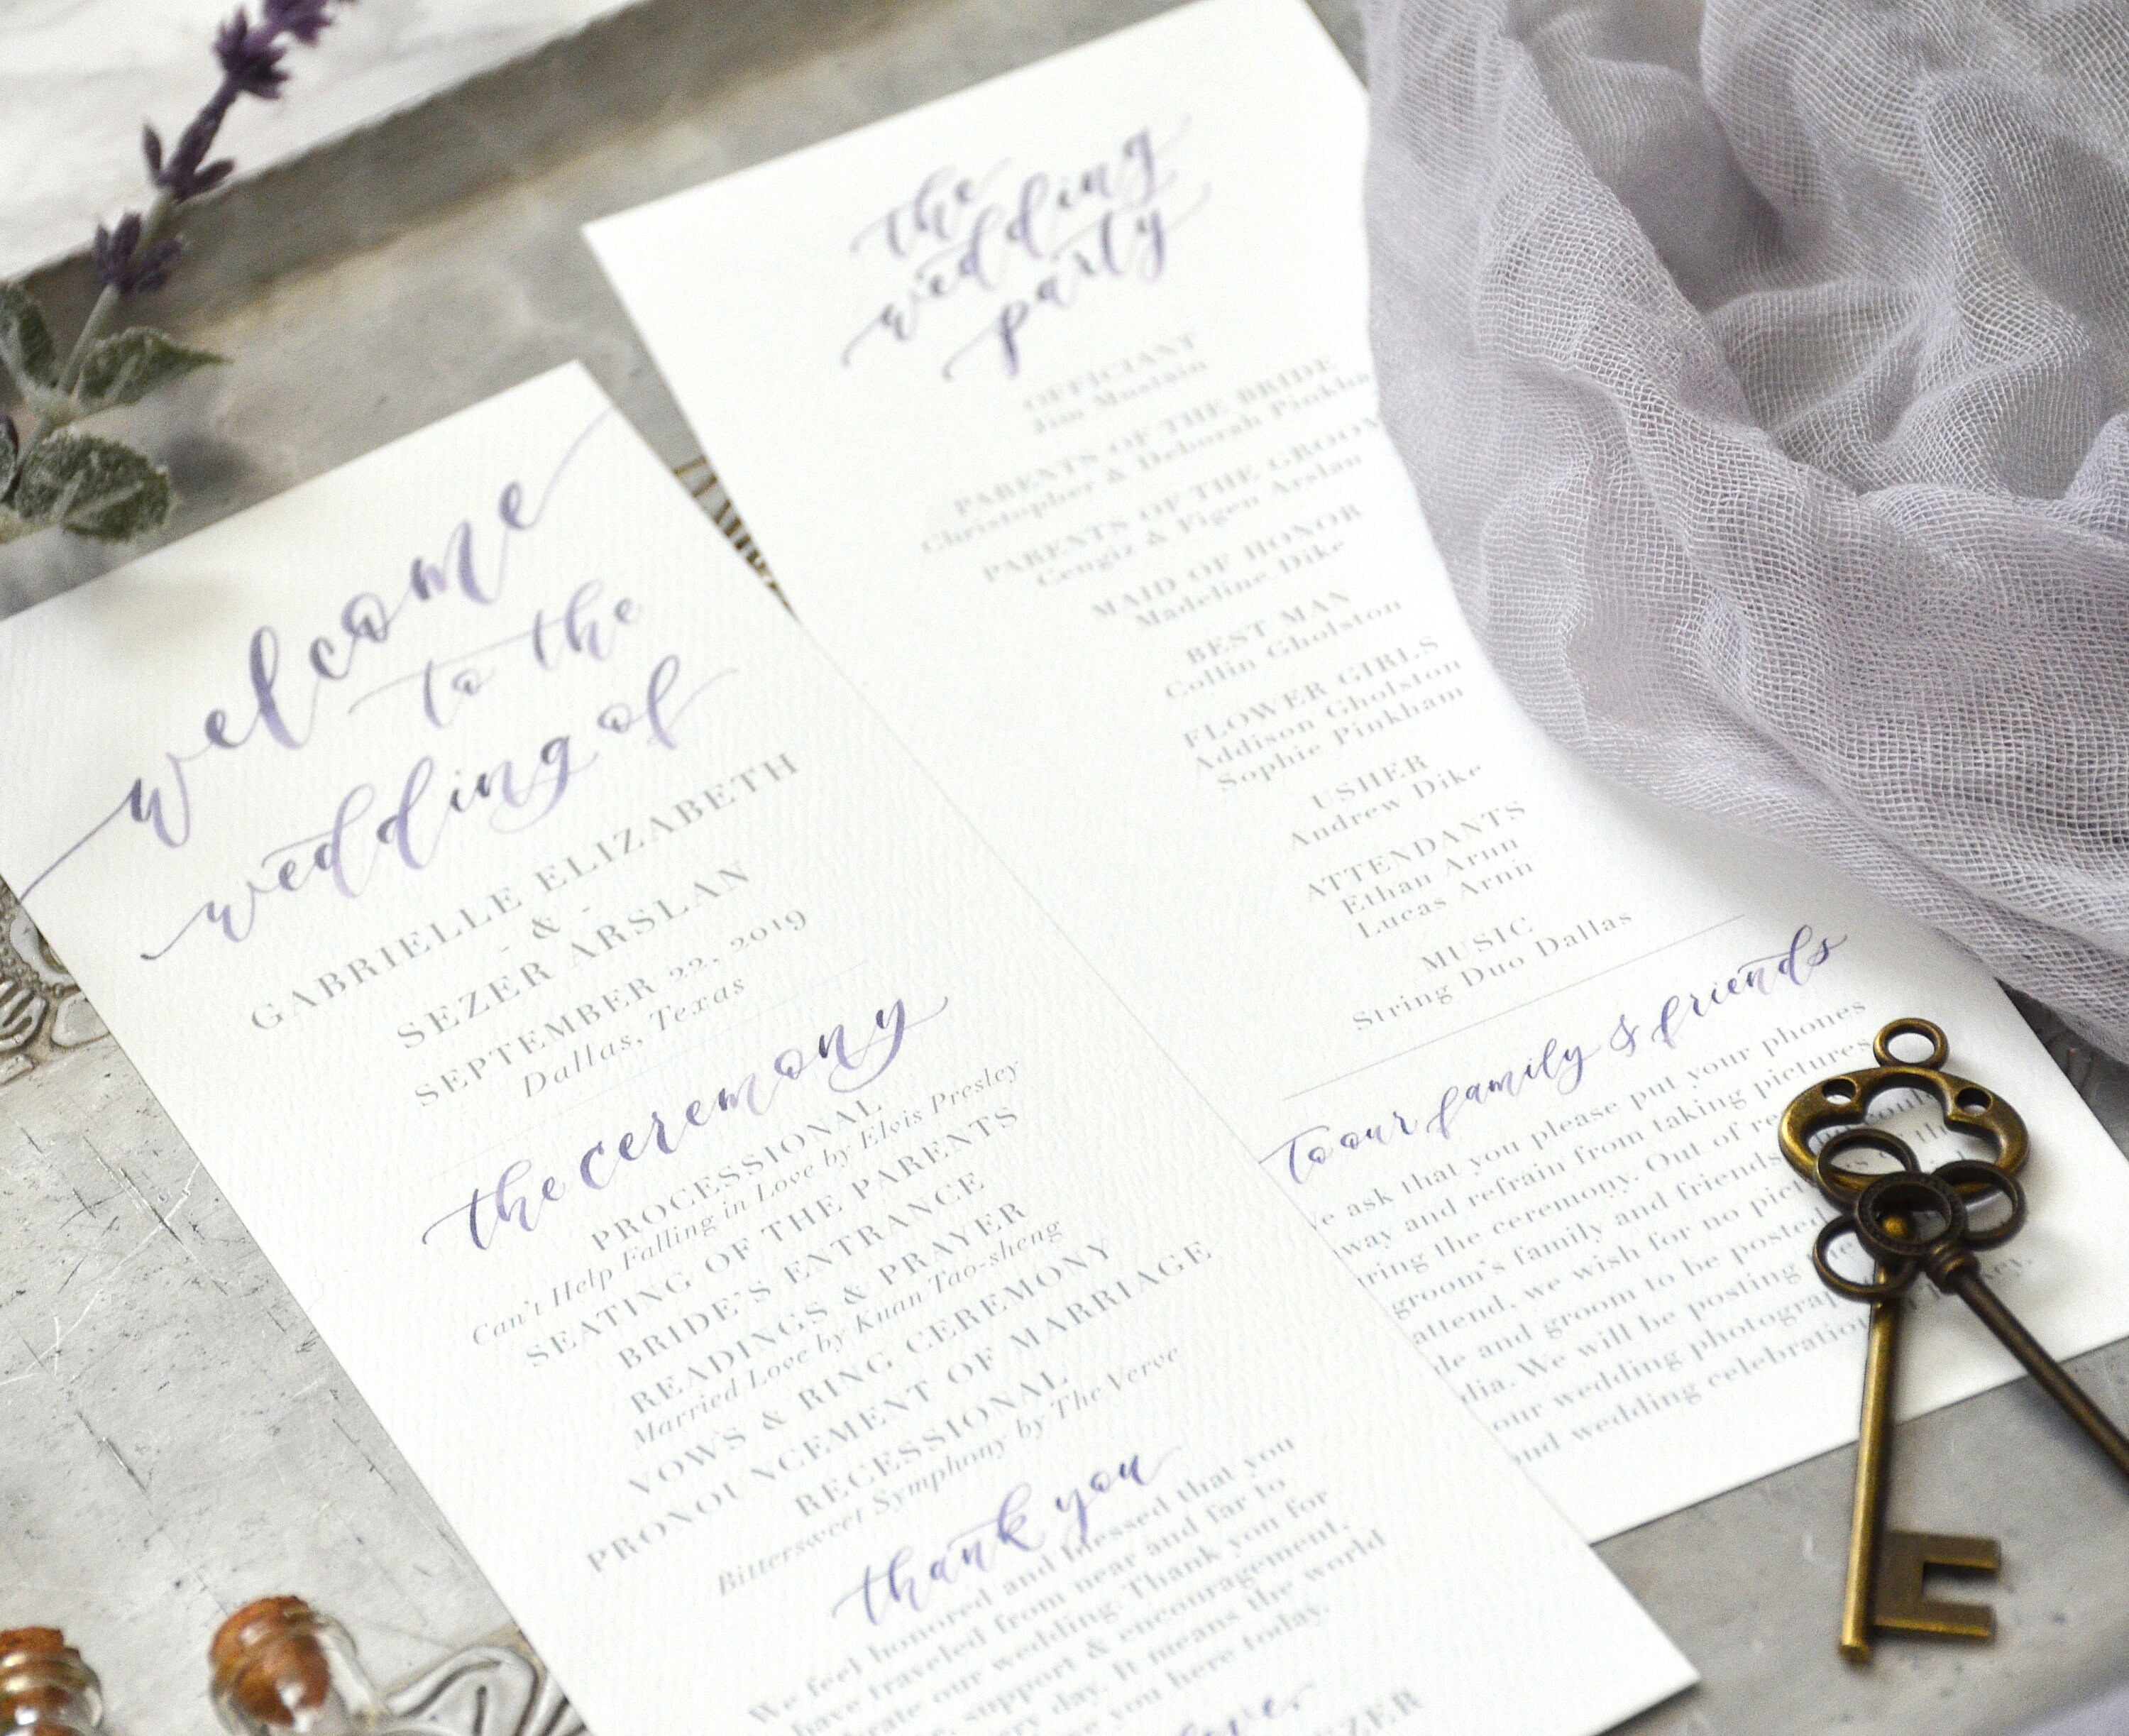 welcome
to the
wedding of
GABRIELLE ELIZABETH
- & -
SEZER ARSLAN
SEPTEMBER 22, 2019
Dallas, Texas
the ceremony
PROCESSIONAL
Can't Help Falling in Love by Elvis Presley
SEATING OF THE PARENTS
BRIDE'S ENTRANCE
READINGS & PRAYER
Married Love by Kuan Tao-sheng
VOWS & RING CEREMONY
PRONOUNCEMENT OF MARRIAGE
RECESSIONAL
Bittersweet Symphony by The Verve
thank you
We feel honored and blessed that you
have traveled from near and far to
our wedding. Thank you for
support & encouragement,
day. It means the world
you here today.
love,
the
wedding
party
OFFICIANT
Jim Mustain
PARENTS OF THE BRIDE
Christopher & Deborah
PARENTS OF THE GROOM
Cengiz & Figen Arslan
MAID OF HONOR
Madeline Dike
BEST MAN
Collin Gholston
FLOWER GIRLS
Addison Gholston
Sophie Pinkham
USHER
Andrew Dike
ATTENDANTS
Ethan Arnn
Lucas Arnn
MUSIC
String Duo Dallas
to our family & friends
ask that you please put your phones
and refrain from taking pictures
the ceremony. Out of
groom's family and friends
attend, we wish for no
and groom to be posted
We will be posting
our wedding
wedding